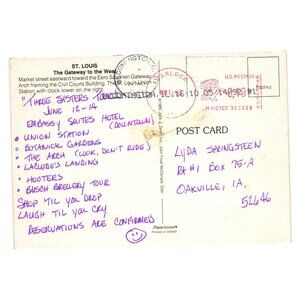 ST. LOUIS
The Gateway to the West
Market street eastward toward the Eero Saarinen Gateway
Arch framing the Civil Courts Building. The St. Louis Union
Station with clock tower on the right.
U.S. POSTAGE
"THREE SISTERS TOUR"
JUNE 12-14
EMBASSY SUITES HOTEL
(DOWNTOWN)
• UNION STATION
○ BOTANICAL GARDENS
• THE ARCH (LOOK, DON'T RIDE)
• LACLEDE'S LANDING
• HOOTERS
• BUSCH BREWERY TOUR
SHOP 'TIL YOU DROP
LAUGH 'TIL YOU CRY
RESERVATIONS ARE CONFIRMED
POST CARD
LYDA SPRINGSTEEN
RR #1 BOX 75-A
OAKVILLE, IA.
52646
Plastichrome®
Printed in Ireland